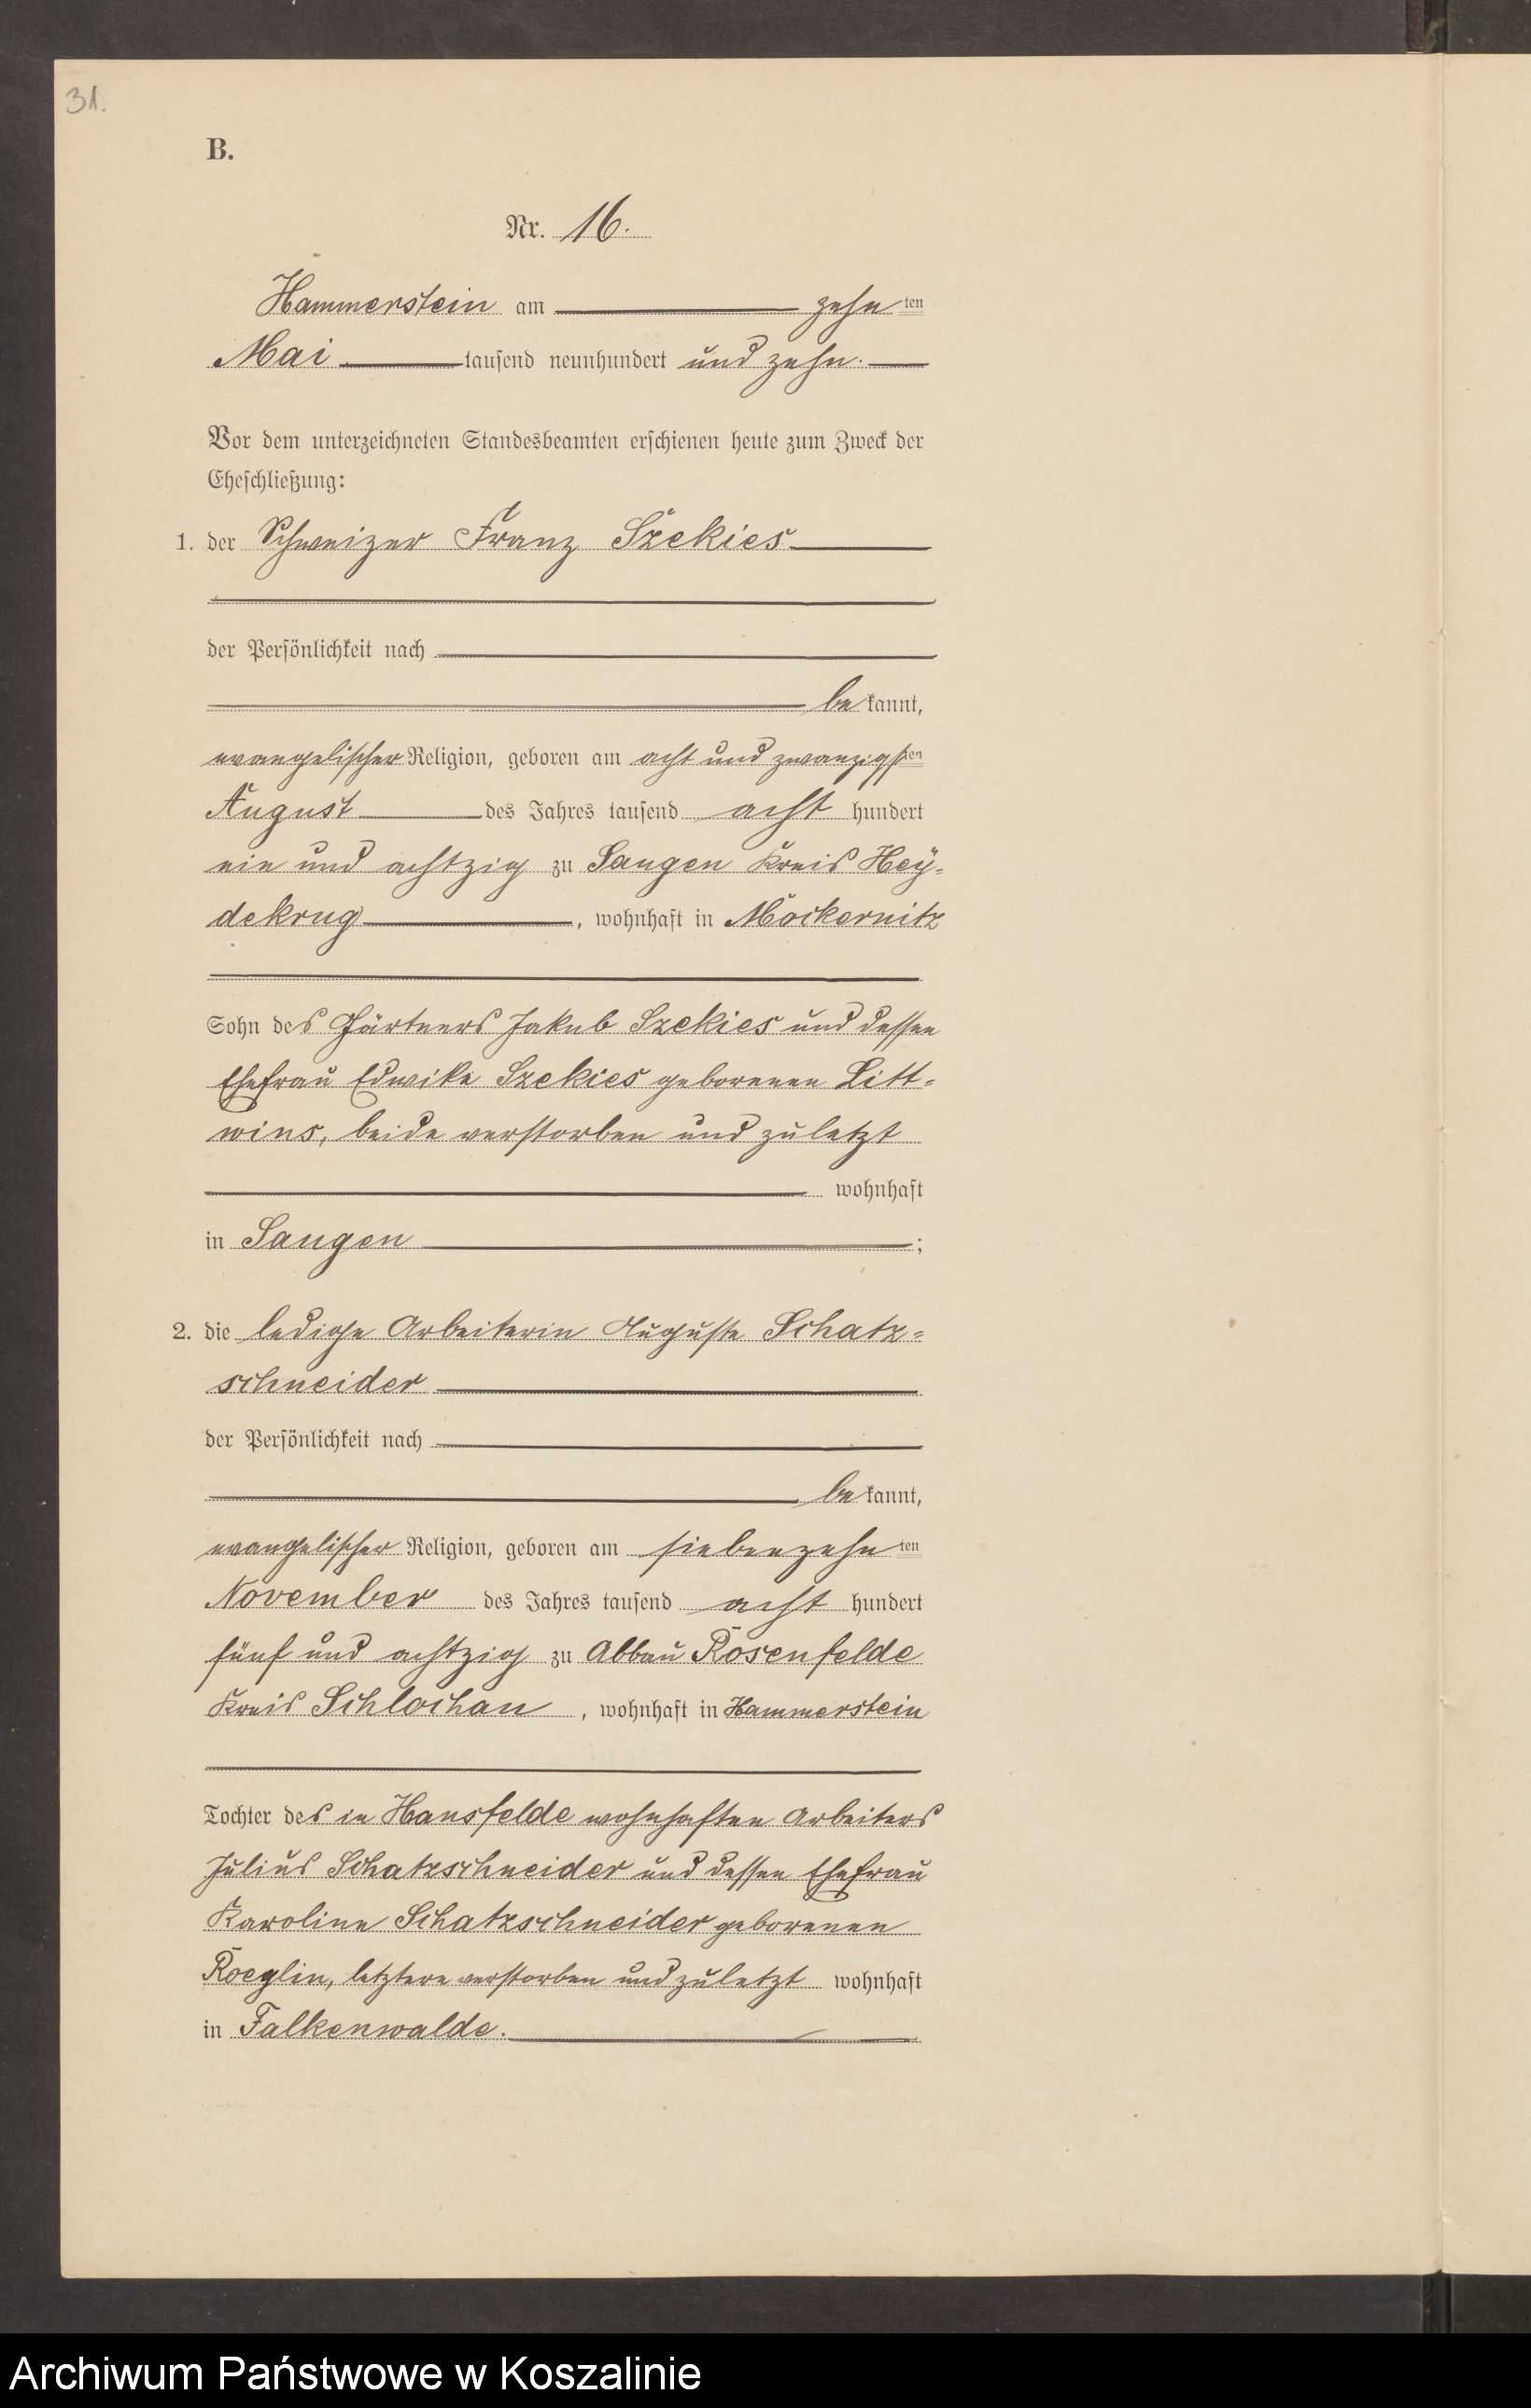 31.
B.
Nr. 16.
Hammerstein am zehn ten
Mai tausend neunhundert und zehn.
Vor dem unterzeichneten Standesbeamten erschienen heute zum Zweck der
Eheschließung:
1. der Schweizer Franz Szekies
der Persönlichkeit nach
be kannt,
evangelischer Religion, geboren am acht und zwanzigsten
August des Jahres tausend acht hundert
ein und achtzig zu Saugen Kreis Hey-
dekrug, wohnhaft in Mockernitz
Sohn des Gärtners Jakub Szekies und dessen
Ehefrau Edwike Szekies geborenen Litt-
wins, beide verstorben und zuletzt
wohnhaft
in Saugen;
2. die ledige Arbeiterin Auguste Schatz-
schneider
der Persönlichkeit nach
be kannt,
evangelischer Religion, geboren am siebenzehn ten
November des Jahres tausend acht hundert
fünf und achtzig zu Abbau Rosenfelde
Kreis Schlochau, wohnhaft in Hammerstein
Tochter des in Hansfelde wohnhaften Arbeiters
Julius Schatzschneider und dessen Ehefrau
Karoline Schatzschneider geborenen
Roeglin, letztere verstorben und zuletzt wohnhaft
in Falkenwalde.
Archiwum Państwowe w Koszalinie